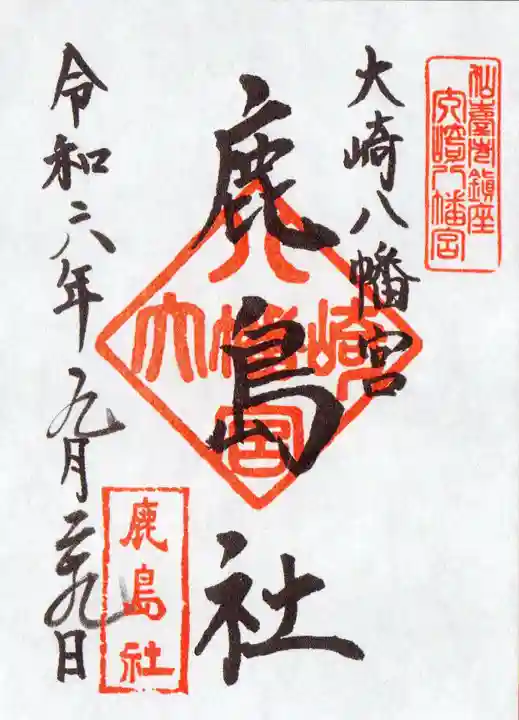 仙臺市鎮座
大崎八幡宮
大崎八幡宮
鹿島社
大崎八幡宮
鹿島社
令和六年九月二十九日